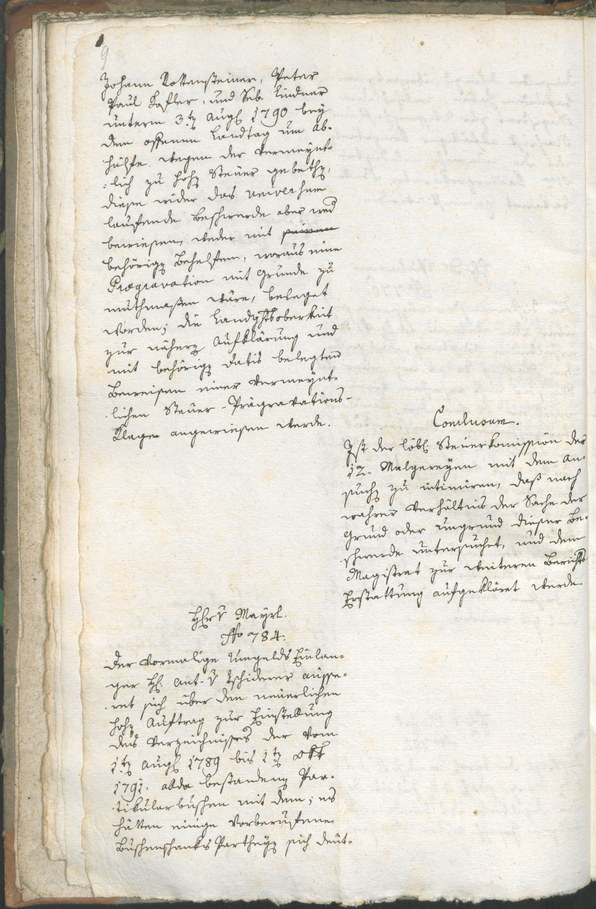 9
Johann Rottensteiner, Peter
Paul Kofler, und Seb. Lindner
unterm 3.t Augl 1790 bey
dem offenen Landtag um Ab-
hülfe wegen der vermeynt-
lich zu hohen Steuer gebethen,
diese wider das
laufende Beschwerde aber und
bewiesen, weder mit
behörigen Behelfen, woraus eine
Praegravation mit Grunde zu
muthmaßen wäre, beleget
worden; die Landshoberkeit
zur näheren Aufklärung und
mit behörigen Datis belegten
Beweisen einer vermeynt-
lichen Steuer-Prägravations-
Klage angewiesen werde.
Conclusum.
Ist der löbl. Steuerkomission der
12. Malgereyen mit dem An-
suchen zu intimiren, daß nach
wahrer Verhältnis der Sache der
Grund oder Ungrund dieser Be-
schwerde untersuchet, und dem
Magistrat zur weiteren Berichts
Erstattung aufgekläret werde.
Hr v Mayrl.
Nro 784.
Der vormalige Umgelds Einlan-
ger H. Ant. v Tschiderer äusse-
ret sich über den neuerlichen
hohen Auftrag zur Einstellung
des Verzeichnisses der vom
1.t Augl 1789 bis 1.t Okt
1791. alda bestandenen Par-
tikularbuschen mit dem; es
hätten einige vorberufene
Buschenschanks Partheyen sich deut-